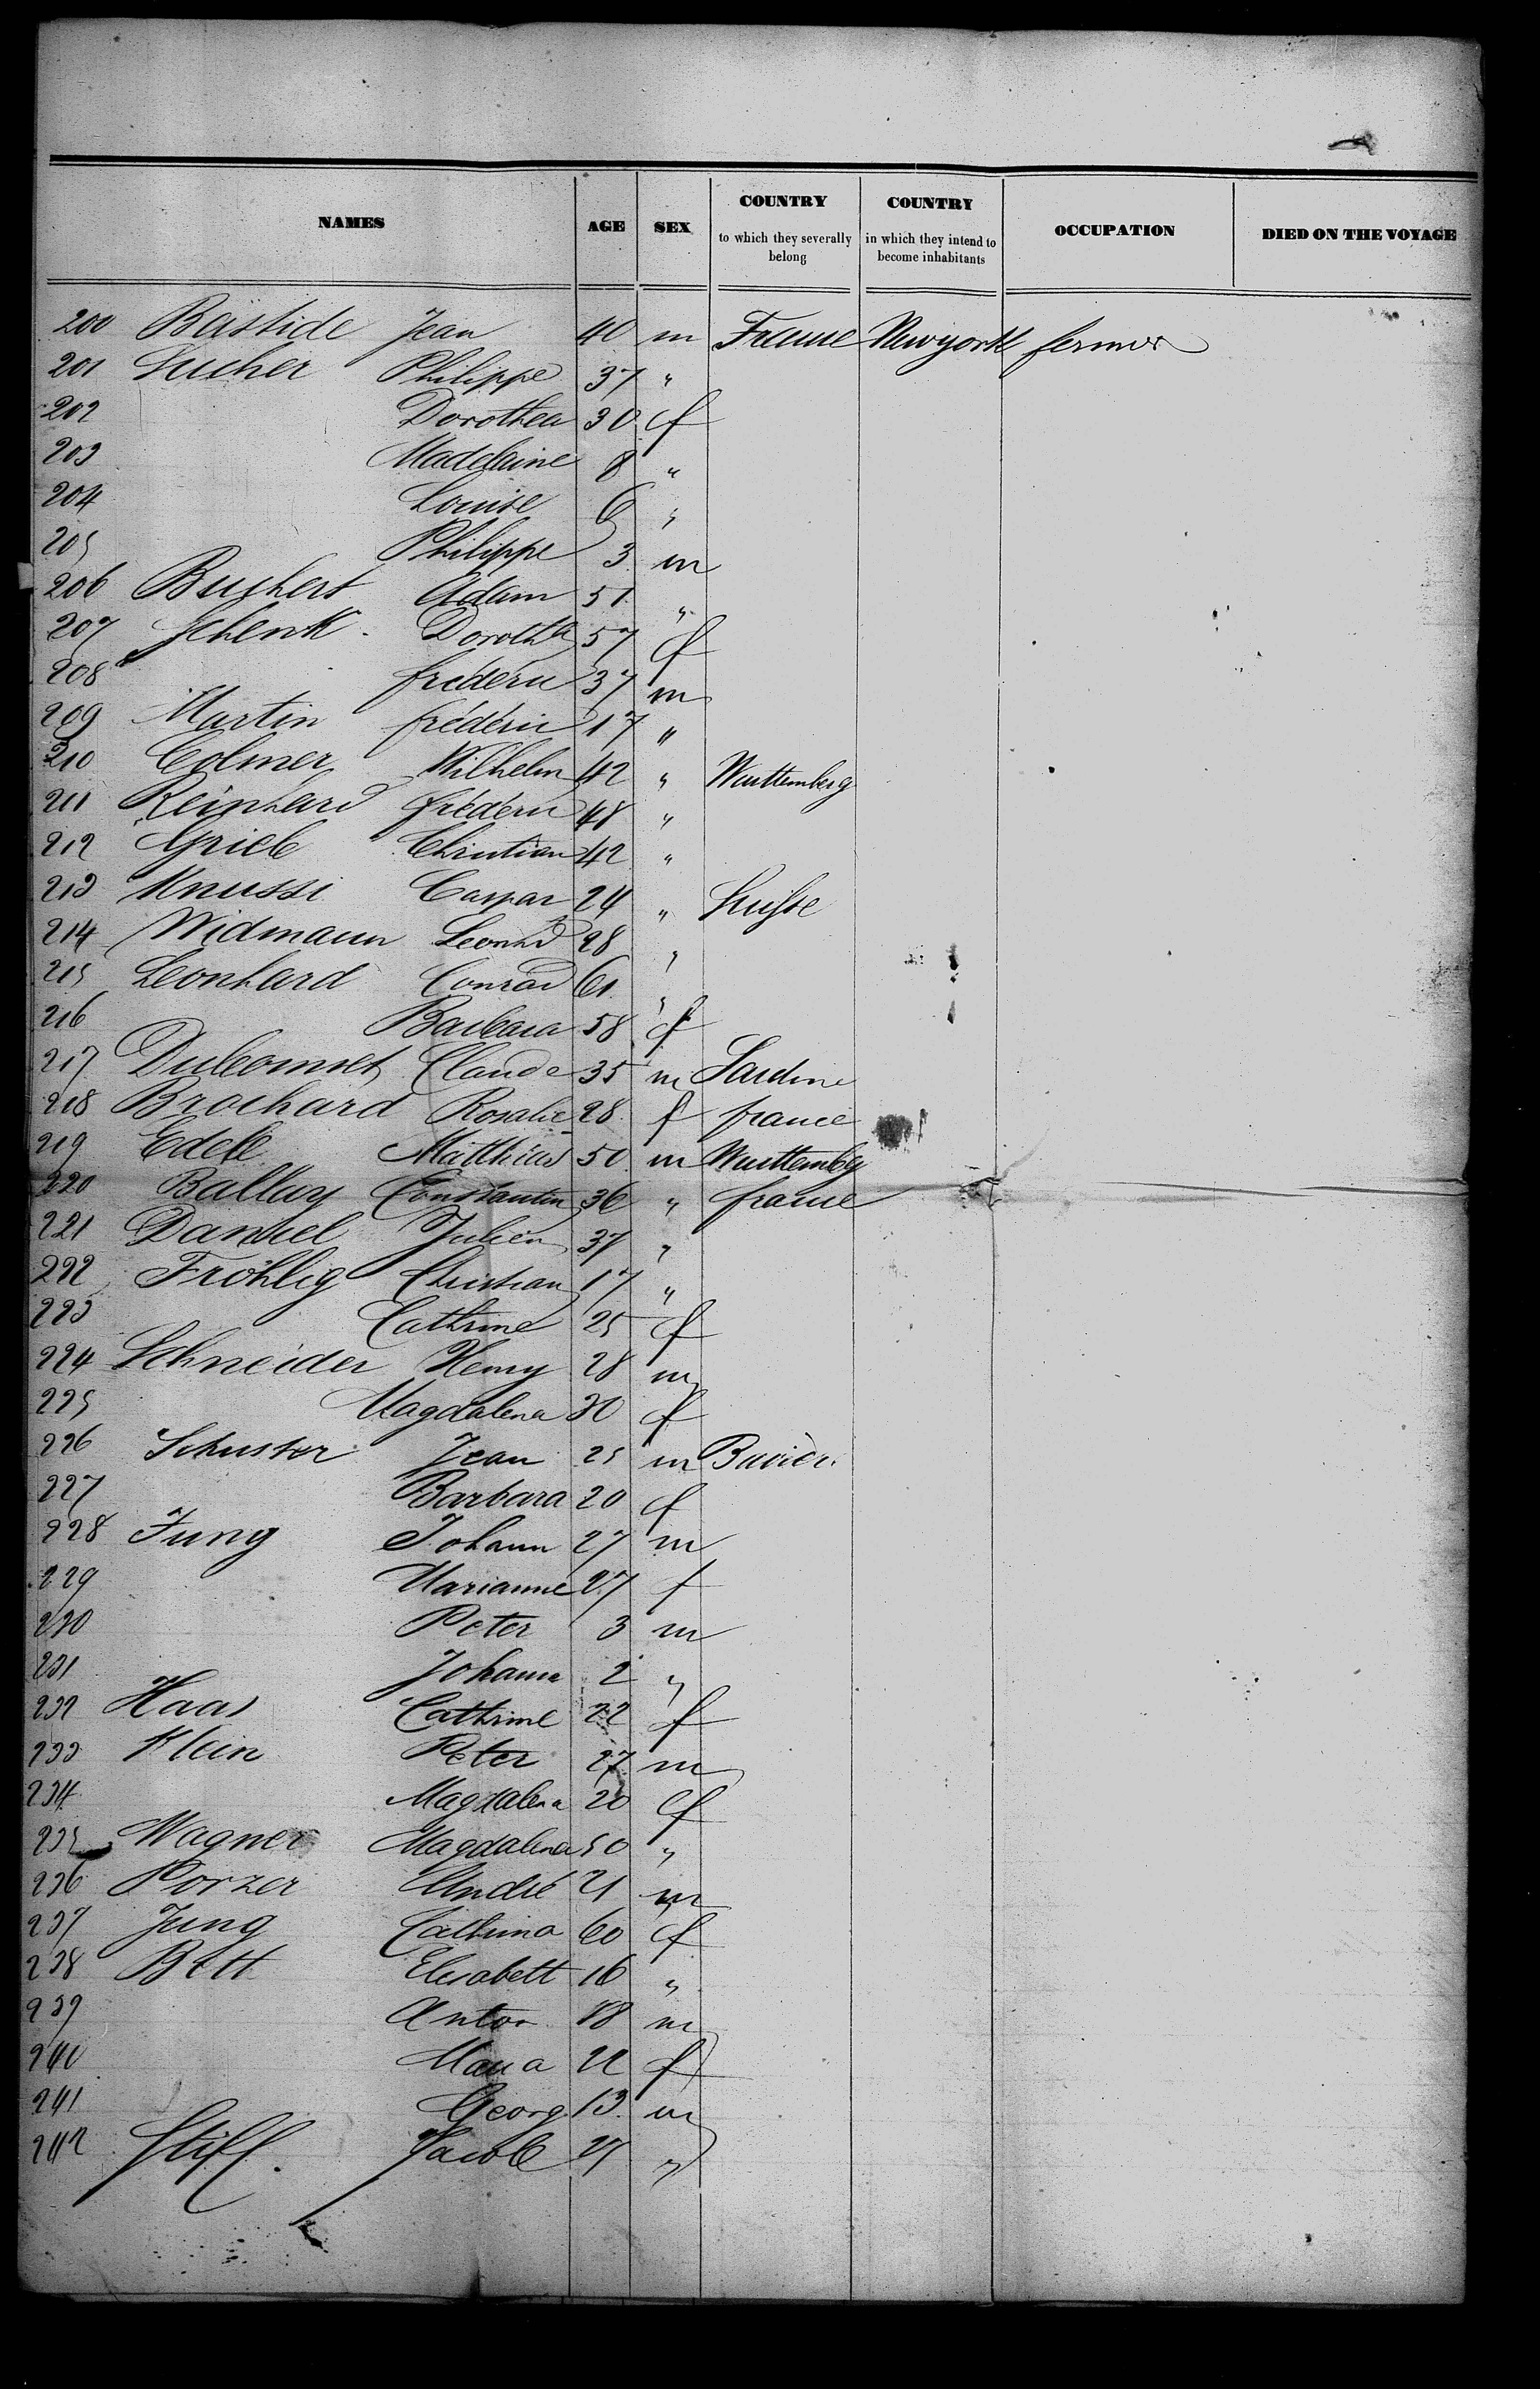 NAMES AGE SEX COUNTRY to which they severally belong COUNTRY in which they intend to become inhabitants OCCUPATION DIED ON THE VOYAGE
200 Bastide Jean 40 m France Newyork fermer
201 Lucher Philippe 37 "
202 Dorothea 30 f
203 Madelaine 8 "
204 Louise 6 "
205 Philippe 3 m
206 Adam 51 "
207 Schenk Doroth 57 f
208 frederic 37 m
209 Martin frédéric 17 "
210 Colmer Wilhelm 42 " Wurttemberg
211 Reinhard frédéric 48 "
212 Grieb Christian 42 "
213 Knussi Caspar 24 " Suisse
214 Widmann Leonhd 28 "
215 Leonhard Conrad 61 "
216 Barbara 58 f
217 Claude 35 m
218 Brochard Rosalie 28 f france
219 Edele Matthias 50 m Wurttembg
220 Ballay Constantin 36 " france
221 Daniel Julien 37 "
222 Fröhlig Christian 17 "
223 Cathrine 25 f
224 Schneider Henry 28 m
225 Magdalena 30 f
226 Schuster Jean 25 m
227 Barbara 20 f
228 Jung Johann 27 m
229 Marianne 27 f
230 Peter 3 m
231 Johann 2 "
232 Haas Cathrine 22 f
233 Klein Peter 27 m
234 Magdalena 20 f
235 Wagner Magdalena 50 "
236 Porzer André 21 m
237 Jung Cathrina 60 f
238 Bett Elisabett 16 "
239 Anton 18 m
240 Maria f
241 Georg 13 m
242 Jacob "